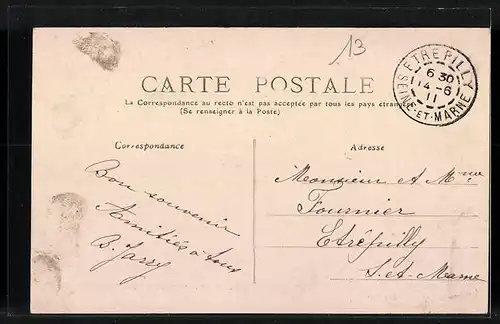 13
ETREPILLY
6 30
14 -6
11
SEINE-ET-MARNE
CARTE POSTALE
La Correspondance au recto n'est pas acceptée par tous les pays étrangers
(Se renseigner à la Poste)
Correspondance
Bon souvenir
Amitiés à tous
B. Jarry
Adresse
Monsieur et Mme
Fournier
Etrépilly
S.-et-Marne